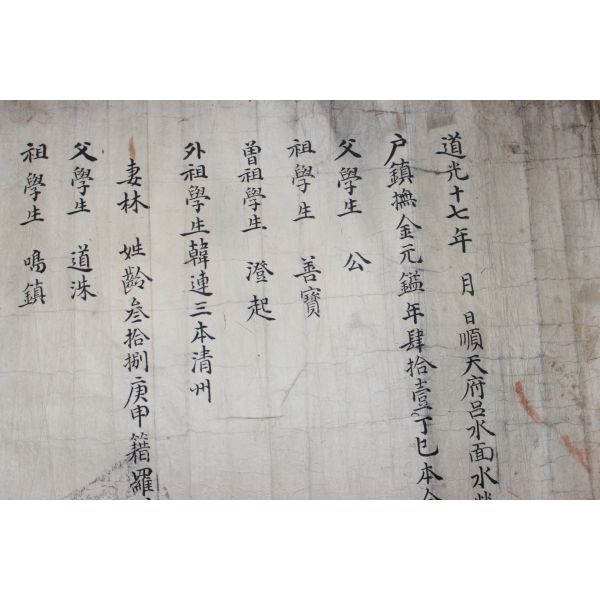 道光十七年 月 日順天府呂水面水
戶鎮撫金元鎰年肆拾壹丁巳本
父學生 公
祖學生 善寶
曾祖學生 澄起
外祖學生韓連三本清州
妻林 姓齡叁拾捌庚申籍羅
父學生 道洙
祖學生 鳴鎮